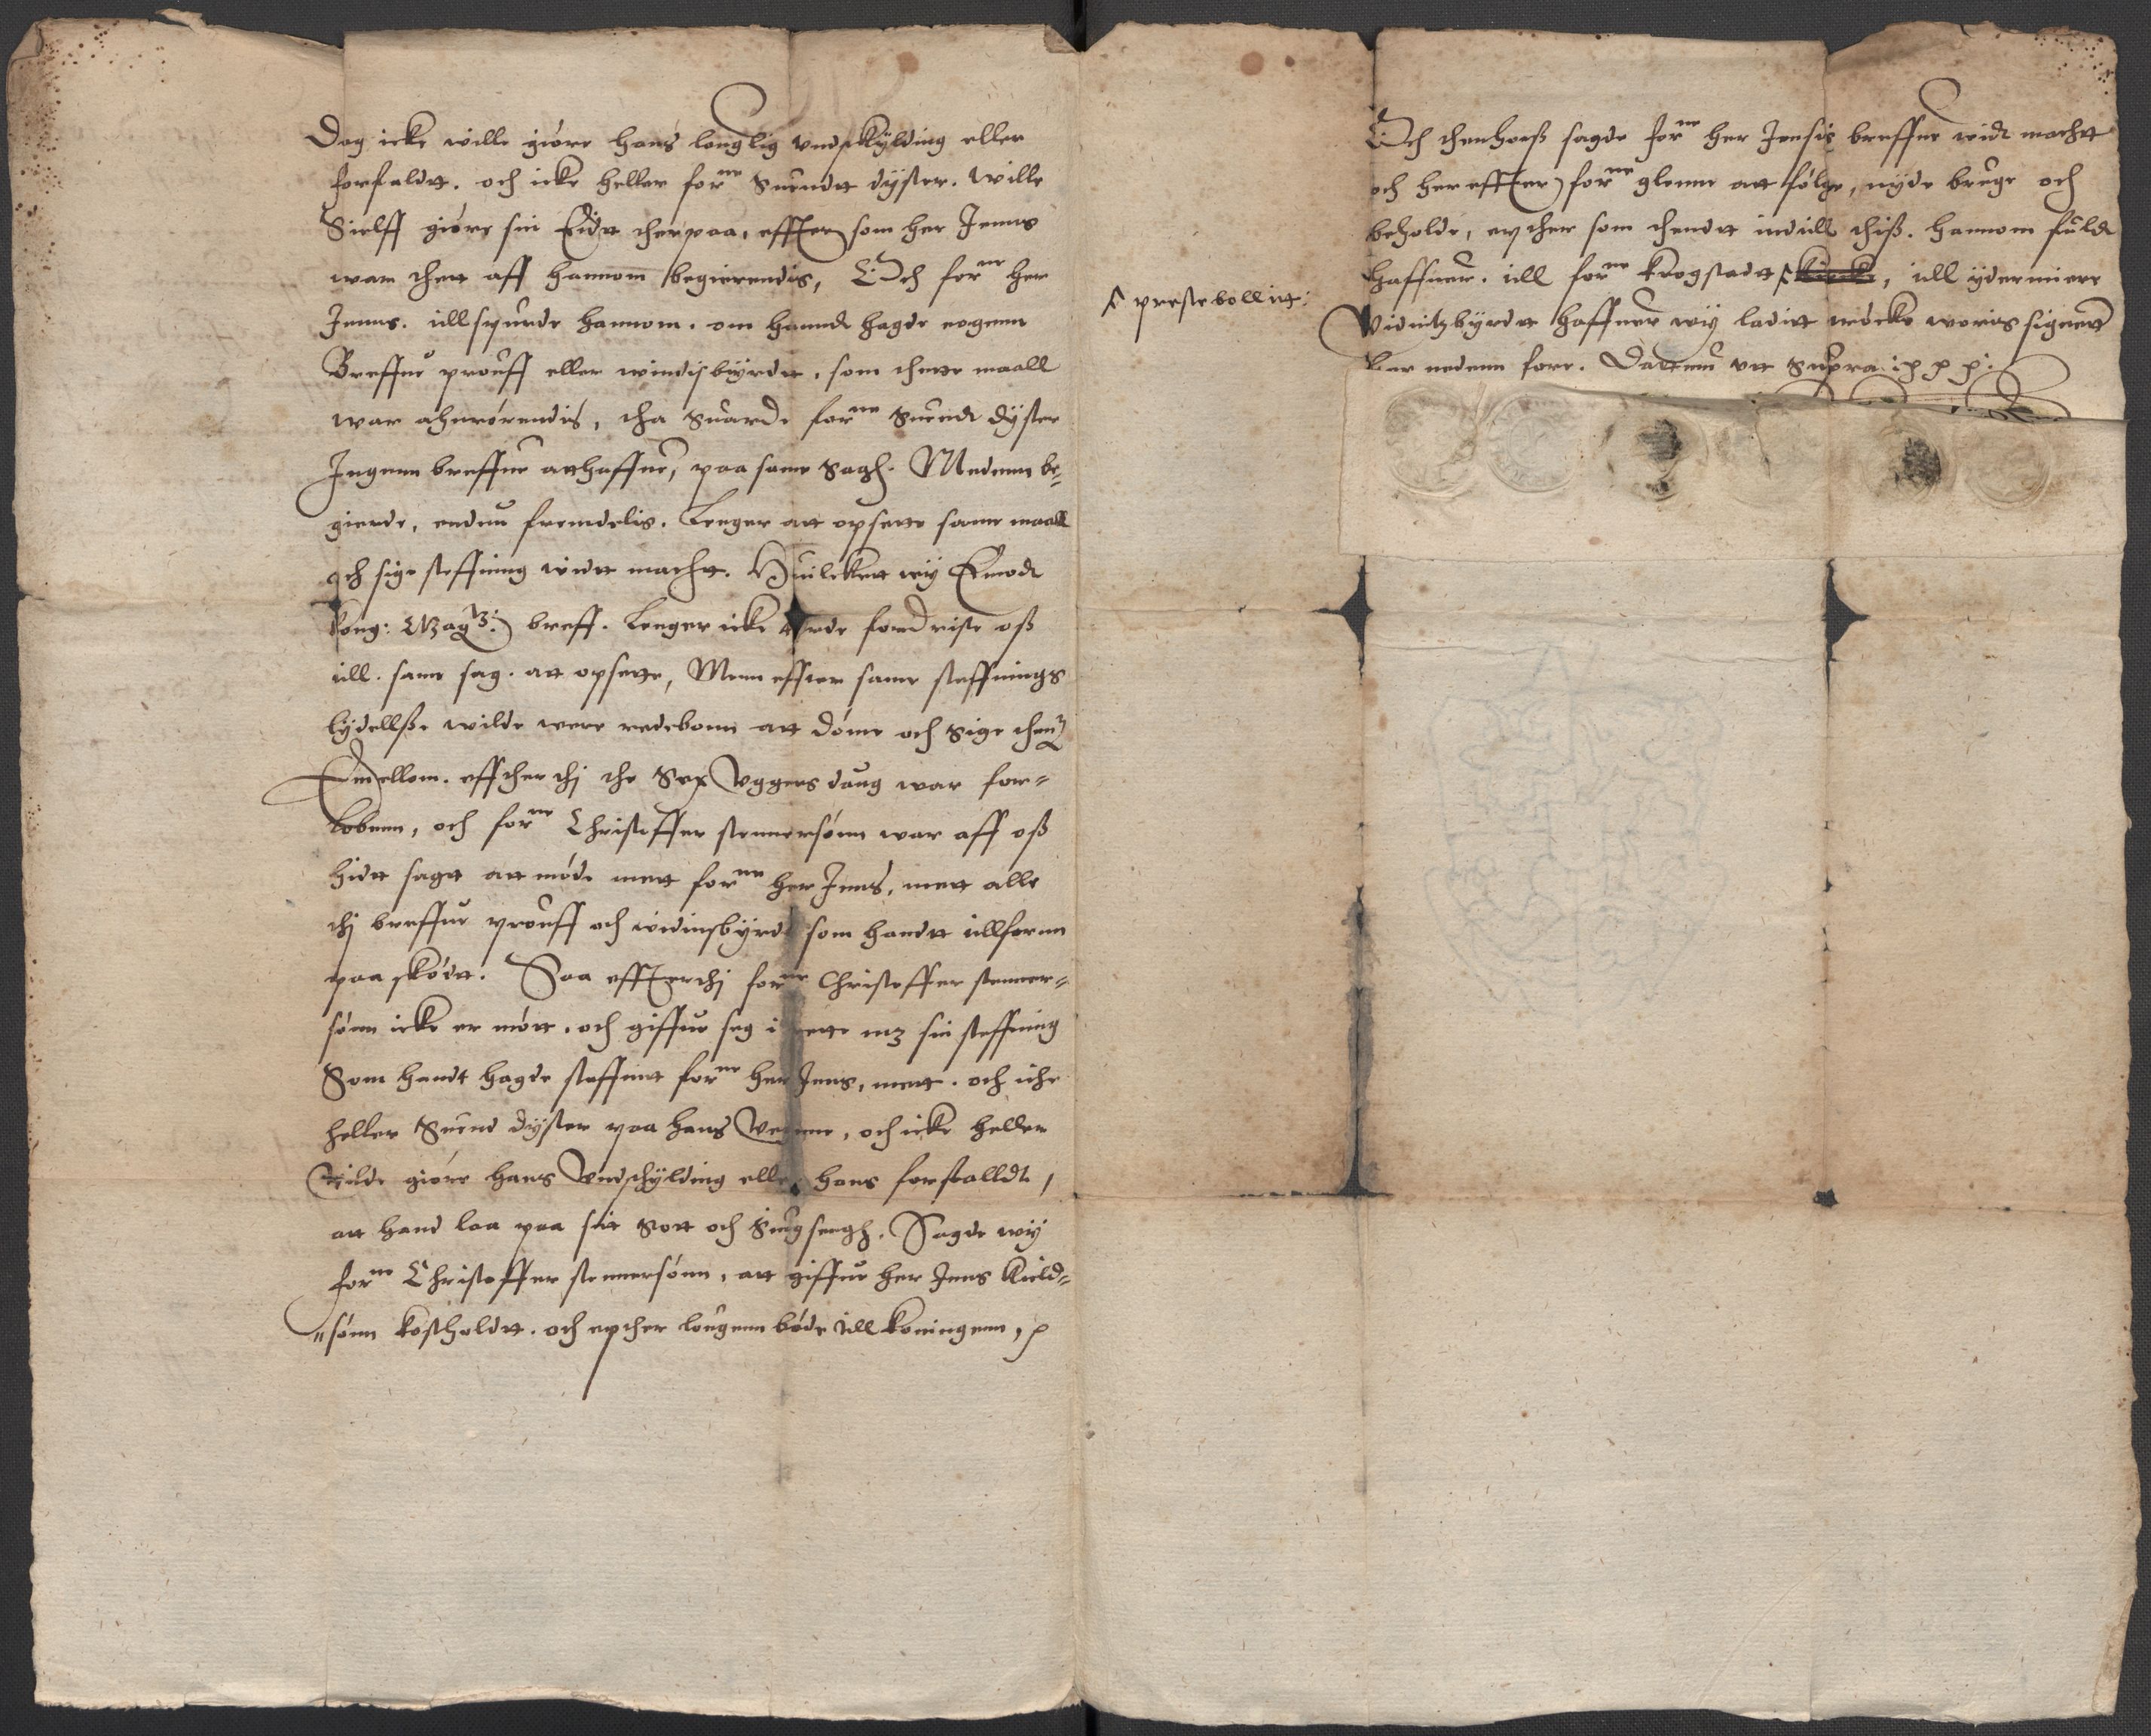 Dog icke wille giøre hans louglig vndskÿlding eller
forfaldtt. och icke heller for^ne Suendtt dÿster. wille
Sielff giøre sin Eidtt ther paa, effter som her Jenns
war thett aff hannom begierendis, Och for^ne her
Jenns. till spurde hannom. om hanndt hagde nogenn
Breffue prouff eller windisbÿrdtt, som thette maall
war ahnrørendis, tha Suarde for^ne Suendt dÿster
Ingenn breffue att haffue, paa same Sagh. Medenn be-
gierde, endnu fremdelis. Lenger att opsette same maall
och sige steffning widtt machtt. Huilckett wÿ Emodt
Kong: Mag^tz: breff. Lenger icke torde fordriste oss
till. same sag. att opsette, Menn effter same steffnings
lÿdellsse wilde were redebonn att dóme och sige thenn
Emellom. effther thj the Sex Vggers daug war for-
lobenn, och for^ne Christoffer stennersónn war aff oss
hidtt sagt att móde mett for^ne her Jens, mett alle
thj breffue prouff och widinsbÿrd som handtt till forenn
paa skódtt. Saa effterthj for^ne Christoffer stenner-
sónn icke er mótt. och giffue seg i rette mz sin steffning
Som handt hagde steffnett for^ne her Jens, mett. och icke
heller Suend dÿster paa hans Vegnne, och icke heller
Vilde gióre hans Vndschÿlding eller hans forfalldt,
att hand laa paa sitt Sott och Siugsengh. Sagde wÿ
for^ne Christoffer stennersónn, att giffue her Jens Kield-
sónn kostholdtt. och epther lougenn bøde till koningenn,
Och thenhoess sagde for^ne her Jensis breffue widt machtt
och hereffter for^ne glenne att følge, nÿde bruge och
beholde, epther som thendtt indtill thiss. hannom fuldt
haffuer. till for^ne Krogstadtt ^ kircke, till ÿdermiere
^ prestebollitt:
Vidnitzbÿrdtt haffuer wÿ laditt trócke woris signett
her nedenn forr. Dattum vtt Supra